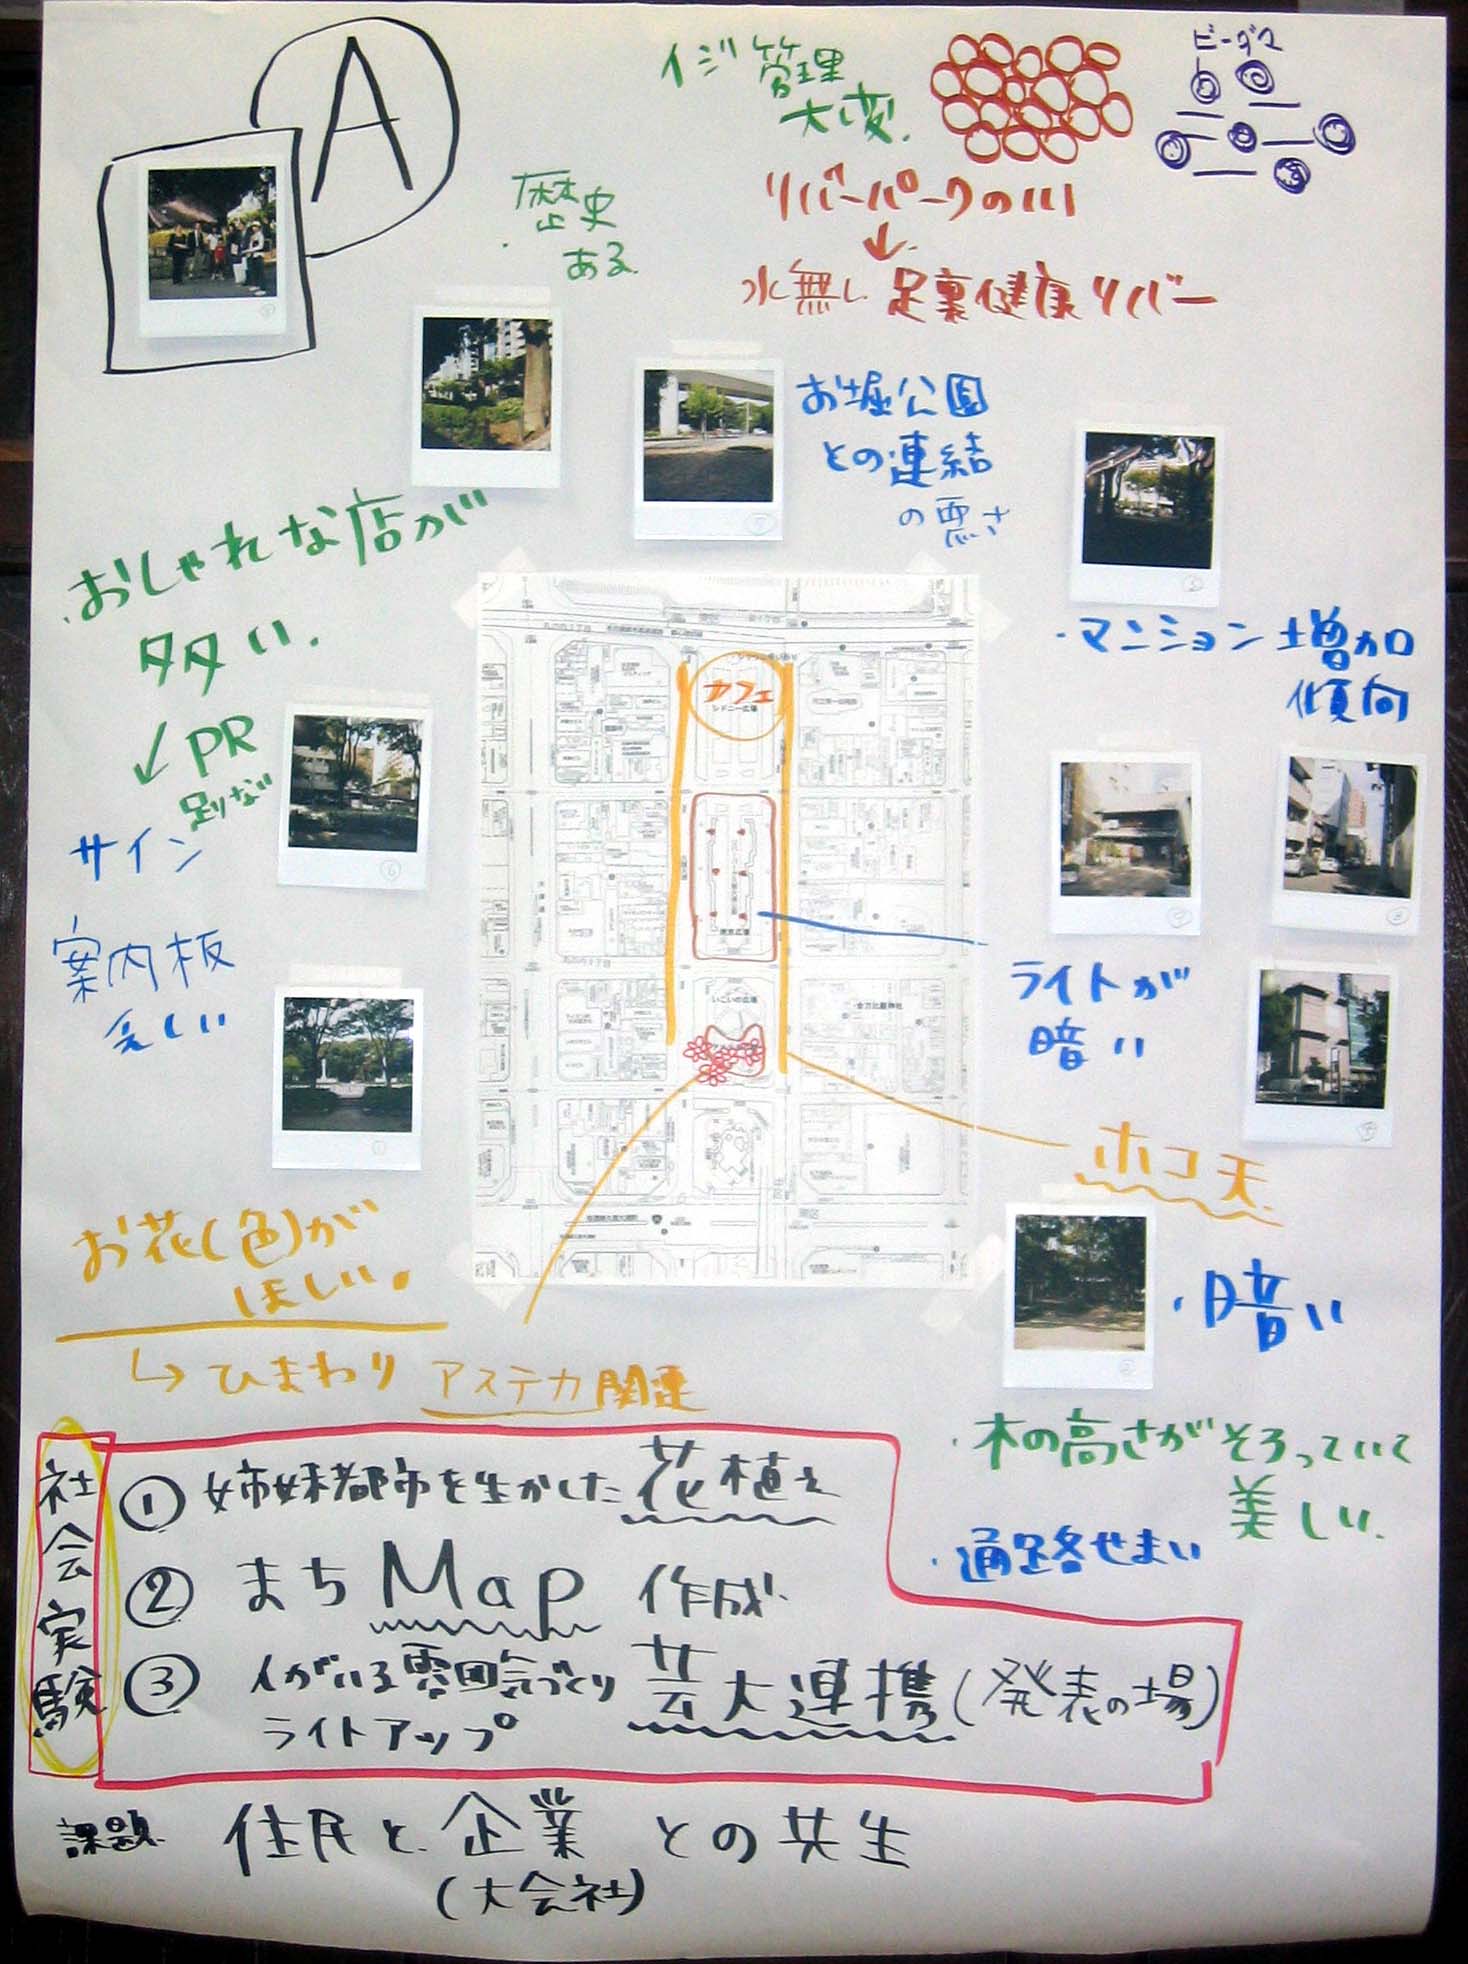 A
イジ管理
大変.
ビーダマ
・歴史
ある.
リバーパークの川
↓
水無し 足裏健康リバー
お堀公園
との連結
の悪さ
・おしゃれな店が
多い.
↙ PR
足りない
サイン
案内板
乏しい
・マンション増加
傾向
カフェ
シドニー広場
いこいの広場
ライトが
暗い
ホコ天
・暗い
お花(色)が
ほしい.
↳ ひまわり アステカ関連
・木の高さがそろっていて
美しい.
・通路せまい
社会実験
① 姉妹都市を生かした花植え
② まちMap 作成.
③ 人がいる雰囲気づくり 芸大連携(発表の場)
ライトアップ
課題. 住民と企業との共生
(大会社)